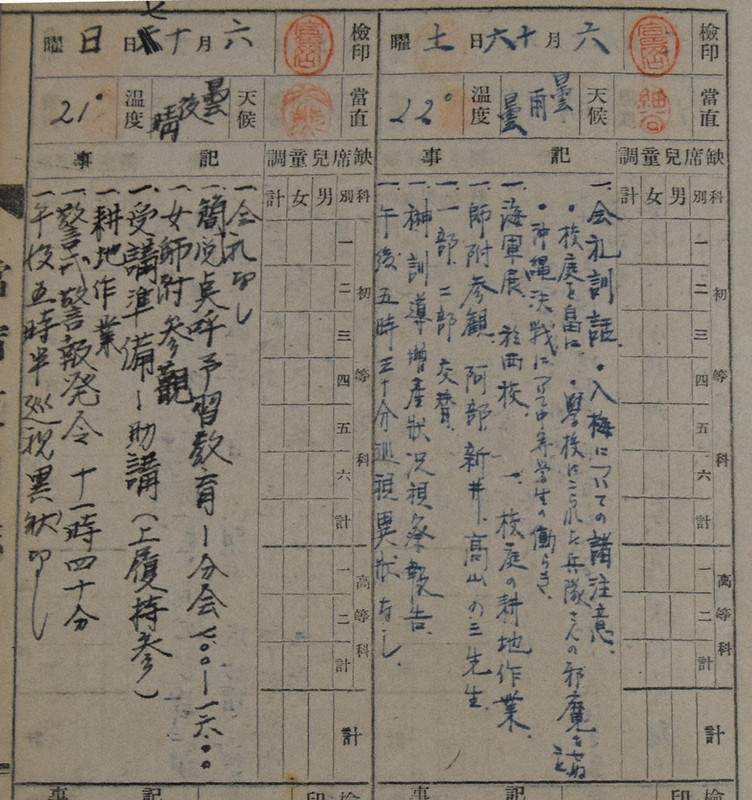 檢印
六月十六日土曜
當直
天候
曇雨曇
温度
22°
缺席兒童調
記事
科別
男
女
計
初等科
一
二
三
四
五
六
計
高等科
一
二
計
計
一、会礼訓話。・入梅についての諸注意。
・校庭を畠に。・學校にこられた兵隊さんの邪魔をせぬこと
・沖縄決戦について中等学生の働らき。
一、海軍展 於西校。一、校庭の耕地作業。
一、師附参観 阿部、新井、高山の三先生。
一、一部、二部交替。
一、榊訓導増産狀況視察報告。
一、午後五時三十分巡視異狀なし。
檢印
六月十七日日曜
當直
天候
曇後晴
温度
21°
缺席兒童調
記事
科別
男
女
計
初等科
一
二
三
四
五
六
計
高等科
一
二
計
計
一、会礼なし
一、簡閲点呼予習教育ー分会 七.〇〇ー一六.〇〇
一、女師附参観
一、受講準備ー助講(上履持参)
一、耕地作業
一、警戒警報発令 十一時四十分
一、午後五時半巡視異狀なし
記事
檢印